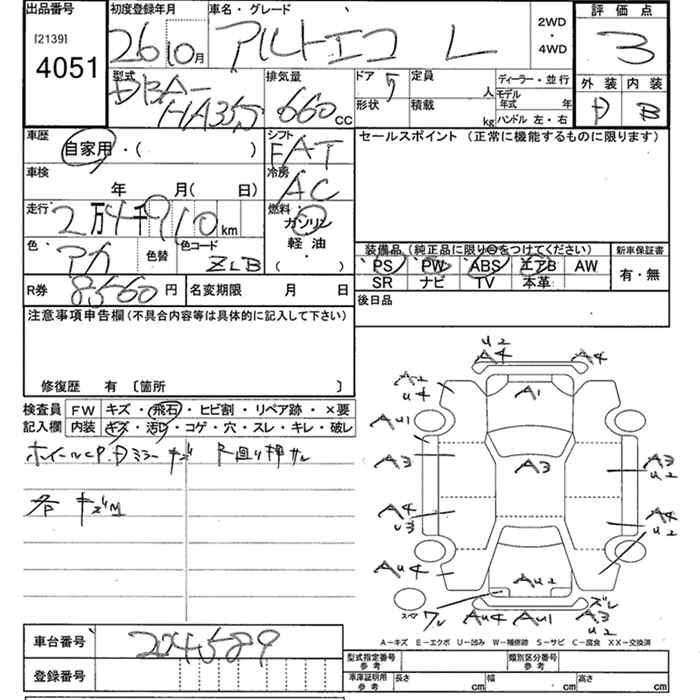 出品番号
[2139]
4051
初度登録年月
26 10月
車名・グレード
アルトエコ L
2WD
・
4WD
評価点
3
外装 内装
D B
型式
DBA-
HA35S
排気量
660 cc
ドア 5
形状
定員 人
積載 kg
ディーラー・並行
モデル年式 年
ハンドル 左・右
車歴
自家用・( )
シフト
FAT
セールスポイント (正常に機能するものに限ります)
車検
年 月( 日)
冷房
AC
走行
2万4千910km
燃料
ガソリン
軽油
( )
色
アカ
色替
色コード
ZLB
装備品 (純正品に限り○をつけてください)
PS PW ABS エアB AW
SR ナビ TV 本革
新車保証書
有・無
R券 8560円
名変期限 月 日
後日品
注意事項申告欄(不具合内容等は具体的に記入して下さい)
修復歴 有 〔箇所 〕
検査員 FW キズ・飛石・ヒビ割・リペア跡・×要
記入欄 内装 キズ・汚レ・コゲ・穴・スレ・キレ・破レ
ホイールCP.Dミラーキズ
各 キズM
U2
A4 A4
A2
U4
A1
AU1
A3
A3
A3
U2
A4
U3
A4
U2
AU4
AU2
スペア ワレ AU4 AU1
ズレ
A3
U2
A−キズ E−エクボ U−凹み W−補修跡 S−サビ C−腐食 XX−交換済
車台番号 224589
登録番号
型式指定番号参考
類別区分番号参考
車庫証明用参考 長さ cm 幅 cm 高さ cm